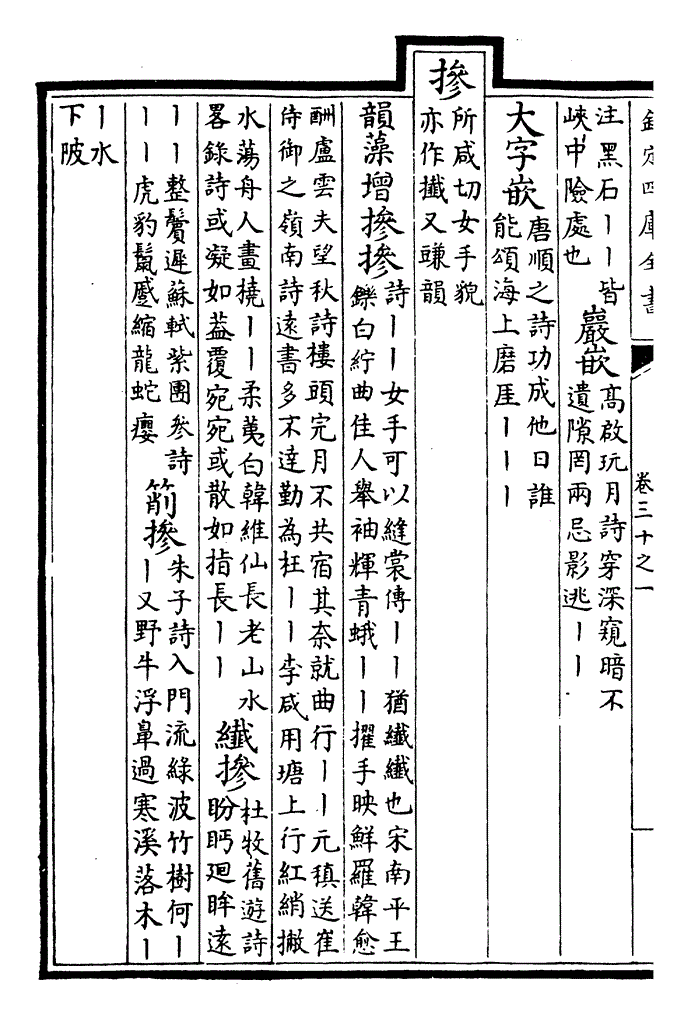 欽定四庫全書
卷三十之一
注黑石丨丨皆
峽中險處也
巖嵌
高啟玩月詩穿深窺暗不
遺隙罔兩忌影逃丨丨
大字嵌
唐順之詩功成他日誰
能頌海上磨厓丨丨丨
摻
所咸切女手貌
亦作攕又豏韻
韻藻增摻摻
詩丨丨女手可以縫裳傳丨丨猶纖纖也宋南平王
鑠白紵曲佳人舉袖輝青蛾丨丨擢手映鮮羅韓愈
酬盧雲夫望秋詩樓頭完月不共宿其奈就曲行丨丨元稹送崔
侍御之嶺南詩逺書多不達勤為枉丨丨李咸用塘上行紅綃撇
水蕩舟人畫橈丨丨柔荑白韓維仙長老山水
畧錄詩或凝如葢覆宛宛或散如指長丨丨
纖摻
杜牧舊遊詩
盼眄廻眸逺
丨丨整鬟遲蘇軾紫團參詩
丨丨虎豹鬣蹙縮龍蛇癭
箾摻
朱子詩入門流緑波竹樹何丨
丨又野牛浮鼻過寒溪落木丨
丨水
下陂